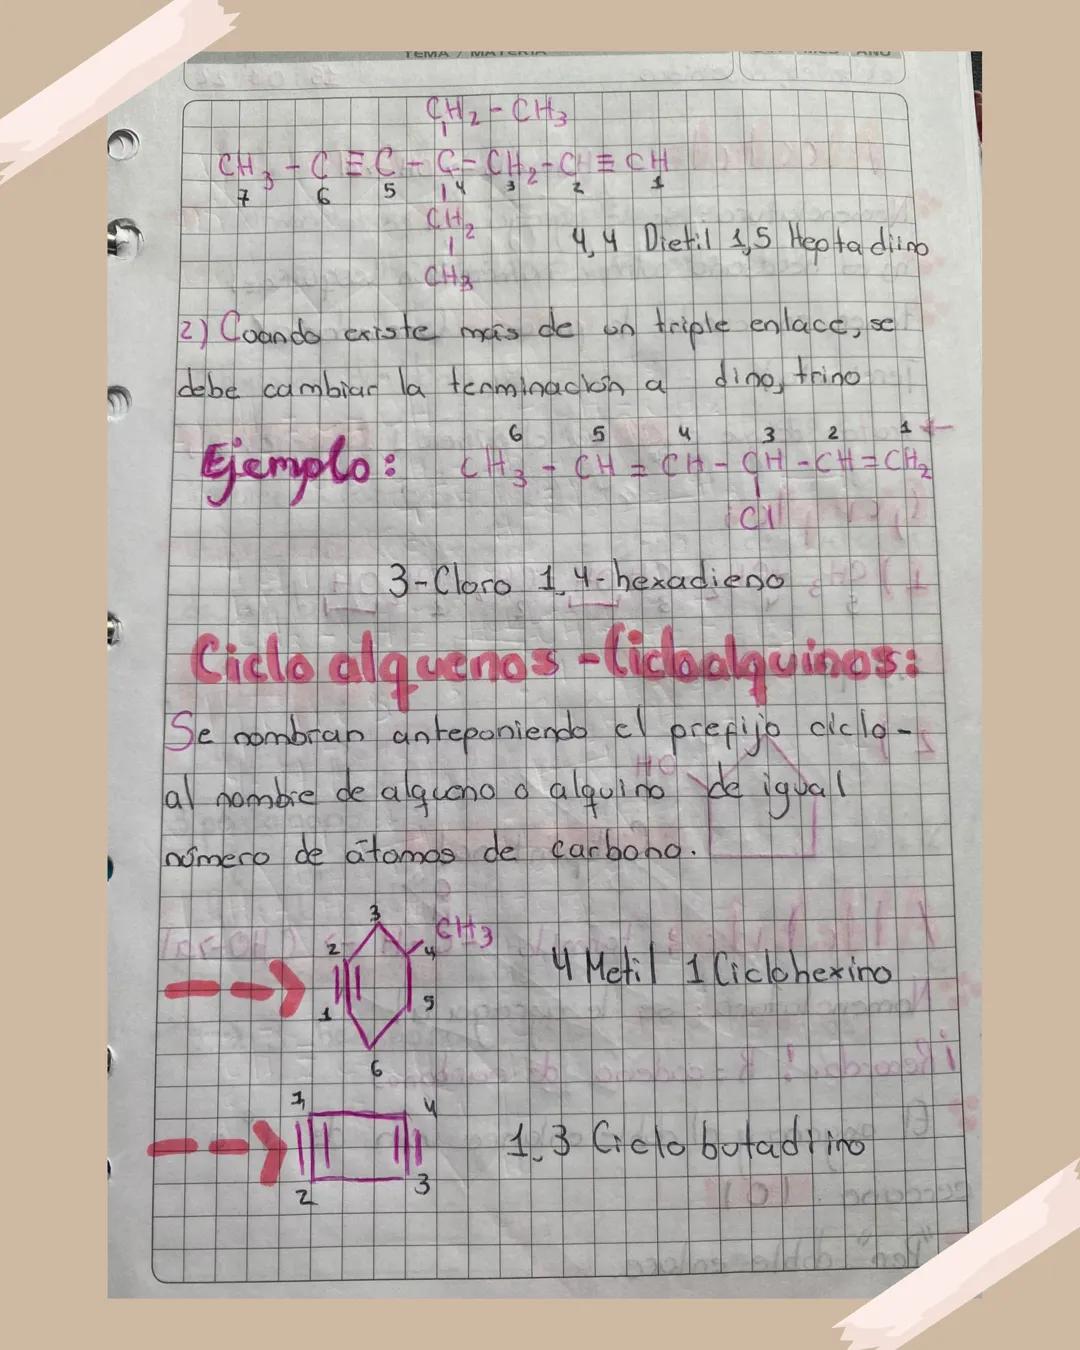 TEMA / MATERIA
CH2 - CH3
CH3 - C ≡ C - C - CH2 - C ≡ CH
7 6 5 4 3 2 1
CH2
4,4 Dietil 1,5 Heptadiino
CH3
2) Cuando existe más de un triple enlace, se
debe cambiar la terminación a diino, triino
6 5 4 3 2 1
Ejemplo: CH3 - CH = CH - CH - CH = CH2
Cl
3-Cloro 1,4-hexadieno
Ciclo alquenos - Cicloalquinos:
Se nombran anteponiendo el prefijo ciclo-
al nombre de alqueno o alquino de igual
número de átomos de carbono.
3
CH3
2 4
4 Metil 1 Ciclohexino
1 5
6
1 4
1,3 Ciclo butadiino
2 3